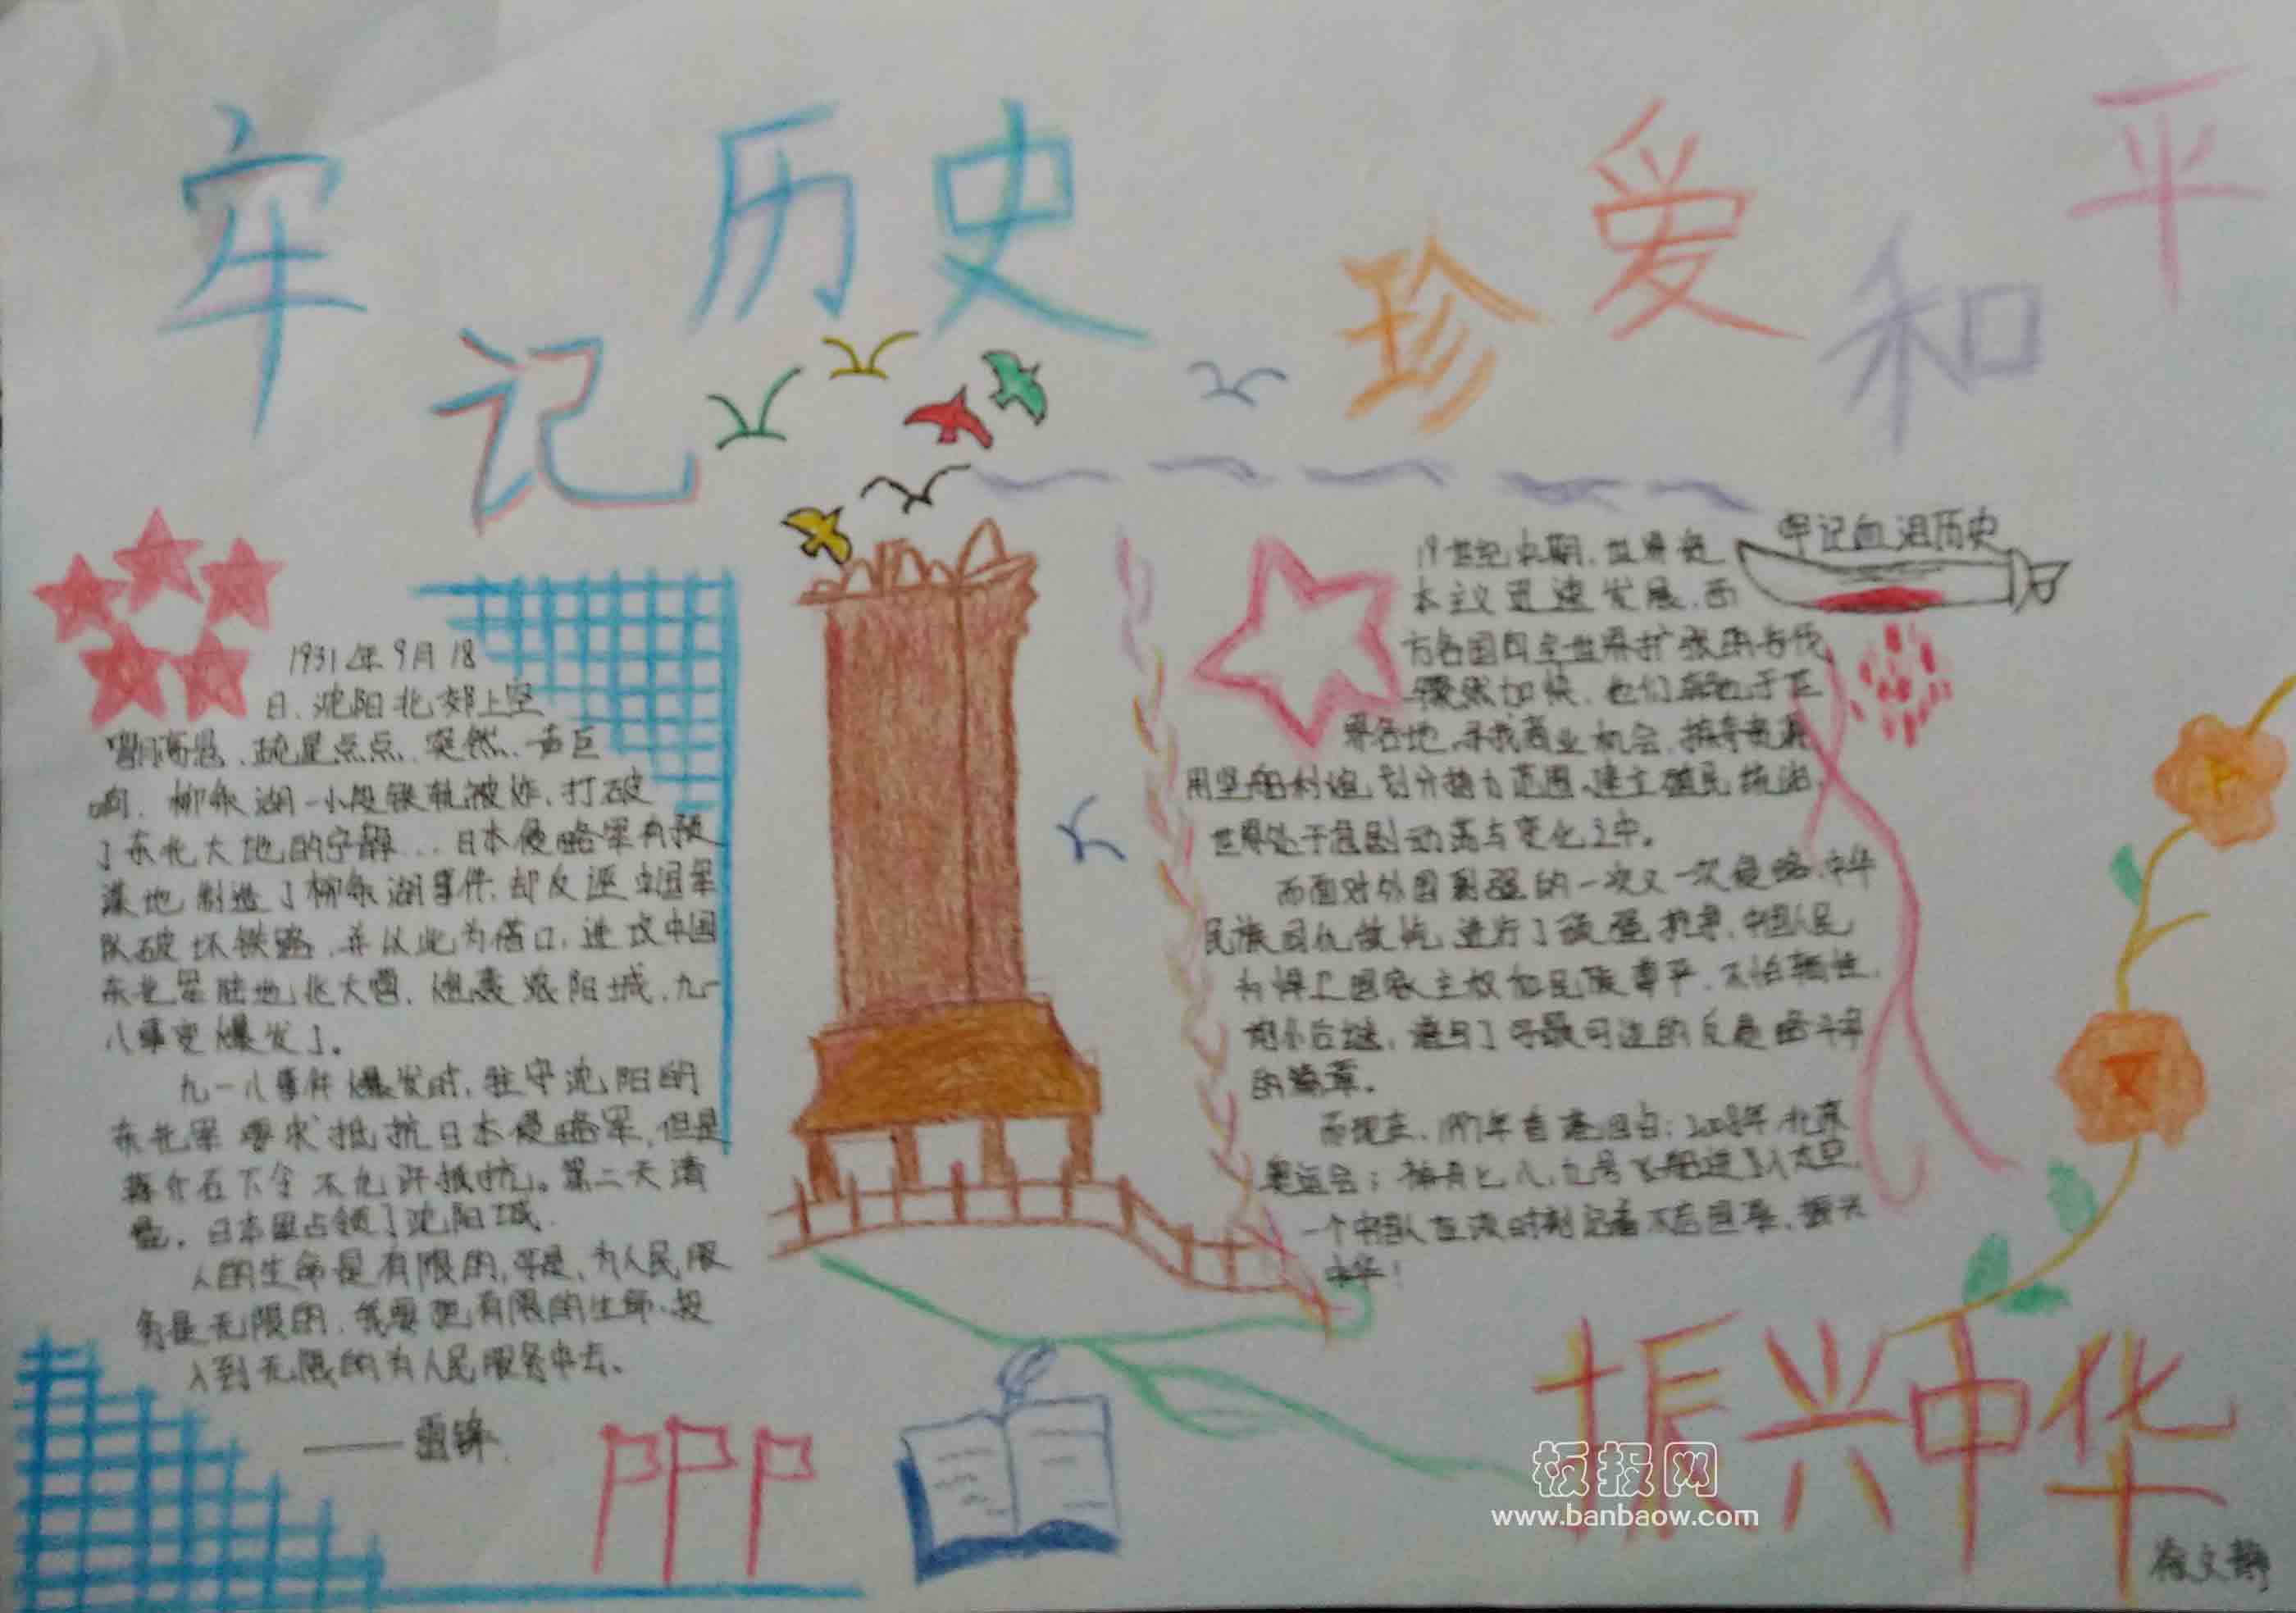 牢记历史 珍爱和平
1931年9月18
日、沈阳北郊上空
疏星点点、突然、一声巨
响、柳条湖一小段铁轨被炸、打破
了东北大地的宁静…日本侵略军有预
谋地制造了柳条湖事件,却反诬中国军
队破坏铁路,并以此为借口,进攻中国
东北军驻地北大营,炮轰沈阳城,九一
八事变爆发了。
九一八事件爆发时,驻守沈阳的
东北军要求抵抗日本侵略军,但是
蒋介石下令不允许抵抗。第二天清
晨,日本军占领了沈阳城.
人的生命是有限的,可是,为人民服
务是无限的,我要把有限的生命,投
入到无限的为人民服务中去。
——雷锋
牢记血泪历史
19世纪末期,世界资
本主义迅速发展,西
方各国向全世界扩张的步伐
骤然加快,他们
界各地,寻找商业机会,掠夺资源
用坚船利炮,划分势力范围、建立殖民统治,
世界处于急剧动荡与变化之中。
而面对外国列强的一次又一次侵略,中华
民族同仇敌忾,进行了顽强抗争,中国人民
为捍卫国家主权和民族尊严,不怕牺牲,
前仆后继,谱写了可歌可泣的反侵略斗争
的篇章。
而现在,1997年香港回归;2008年北京
奥运会;神舟七、八、九号飞船进入太空.
一个中国人应该时刻记着不忘国耻,振兴
中华!
振兴中华
板报网
www.banbaow.com